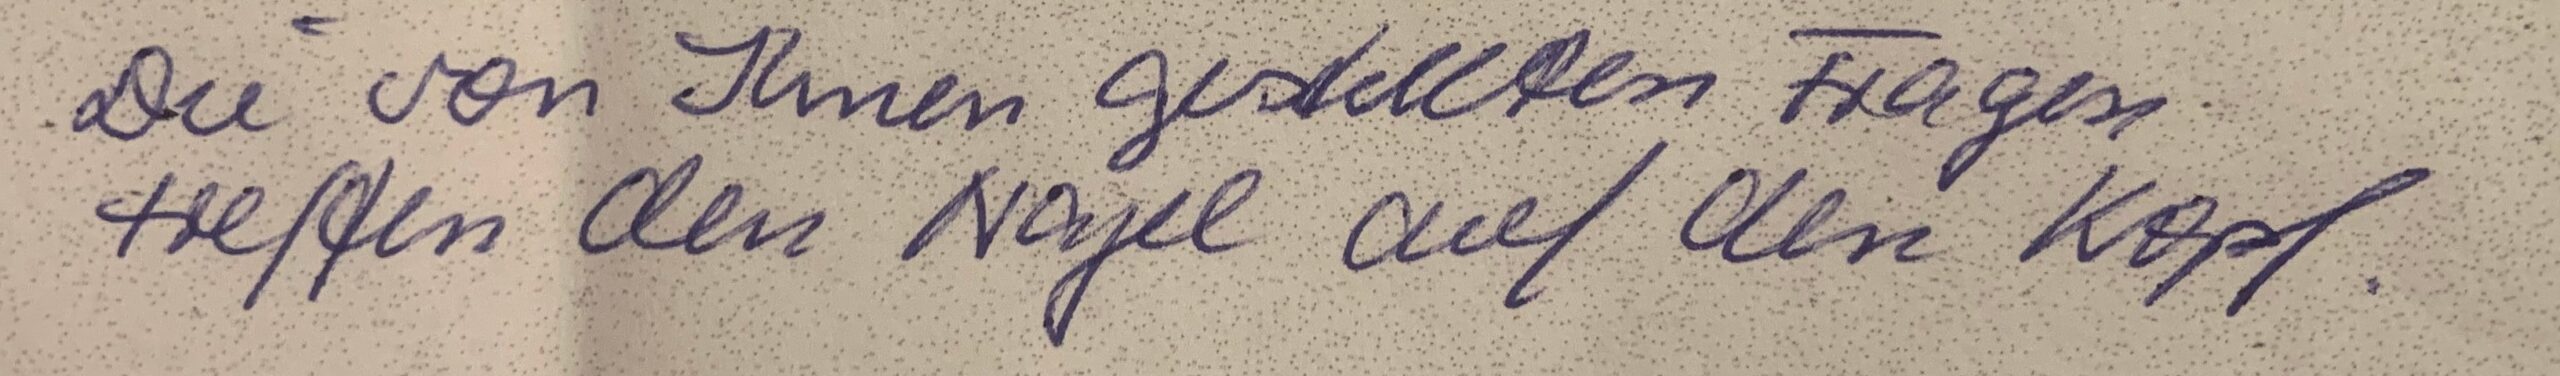 Die von Ihnen gestellten Fragen
treffen den Nagel auf den Kopf.